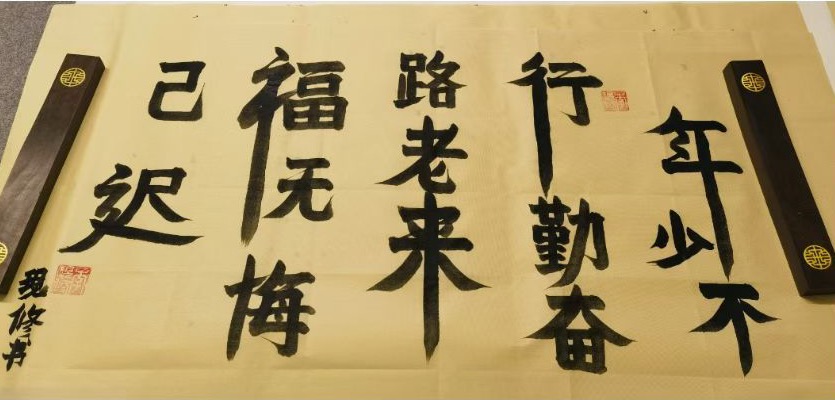 年少不
行勤奋
路老来
福无梅
己迟
现修书